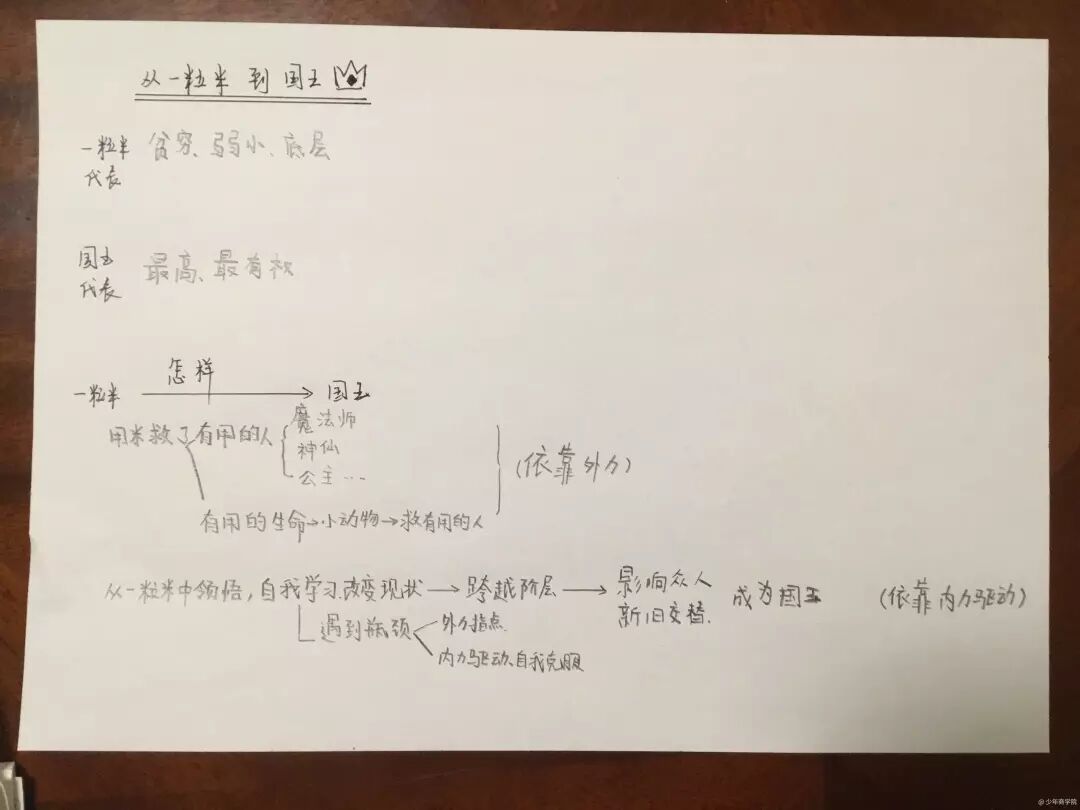 从一粒米到国王
一粒米
代表
贫穷、弱小、底层
国王
代表
最高、最有权
一粒米 怎样 国王
用米救了有用的人
魔法师
神仙
公主…
(依靠外力)
有用的生命→小动物→救有用的人
从一粒米中领悟,自我学习.改变现状→跨越阶层→影响众人 成为国王 (依靠内力驱动)
新旧交替.
遇到瓶颈
外力指点
内力驱动、自我克服
@少年商学院